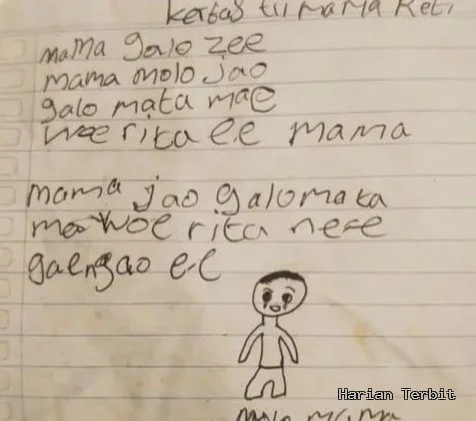 kertas tii mama Reti
mama galo zee
mama molo jao
galo mata mae
woe rita ee mama
mama jao galo mata
mae woe rita ne e
gaengao ee
molo mama
Harian Terbit